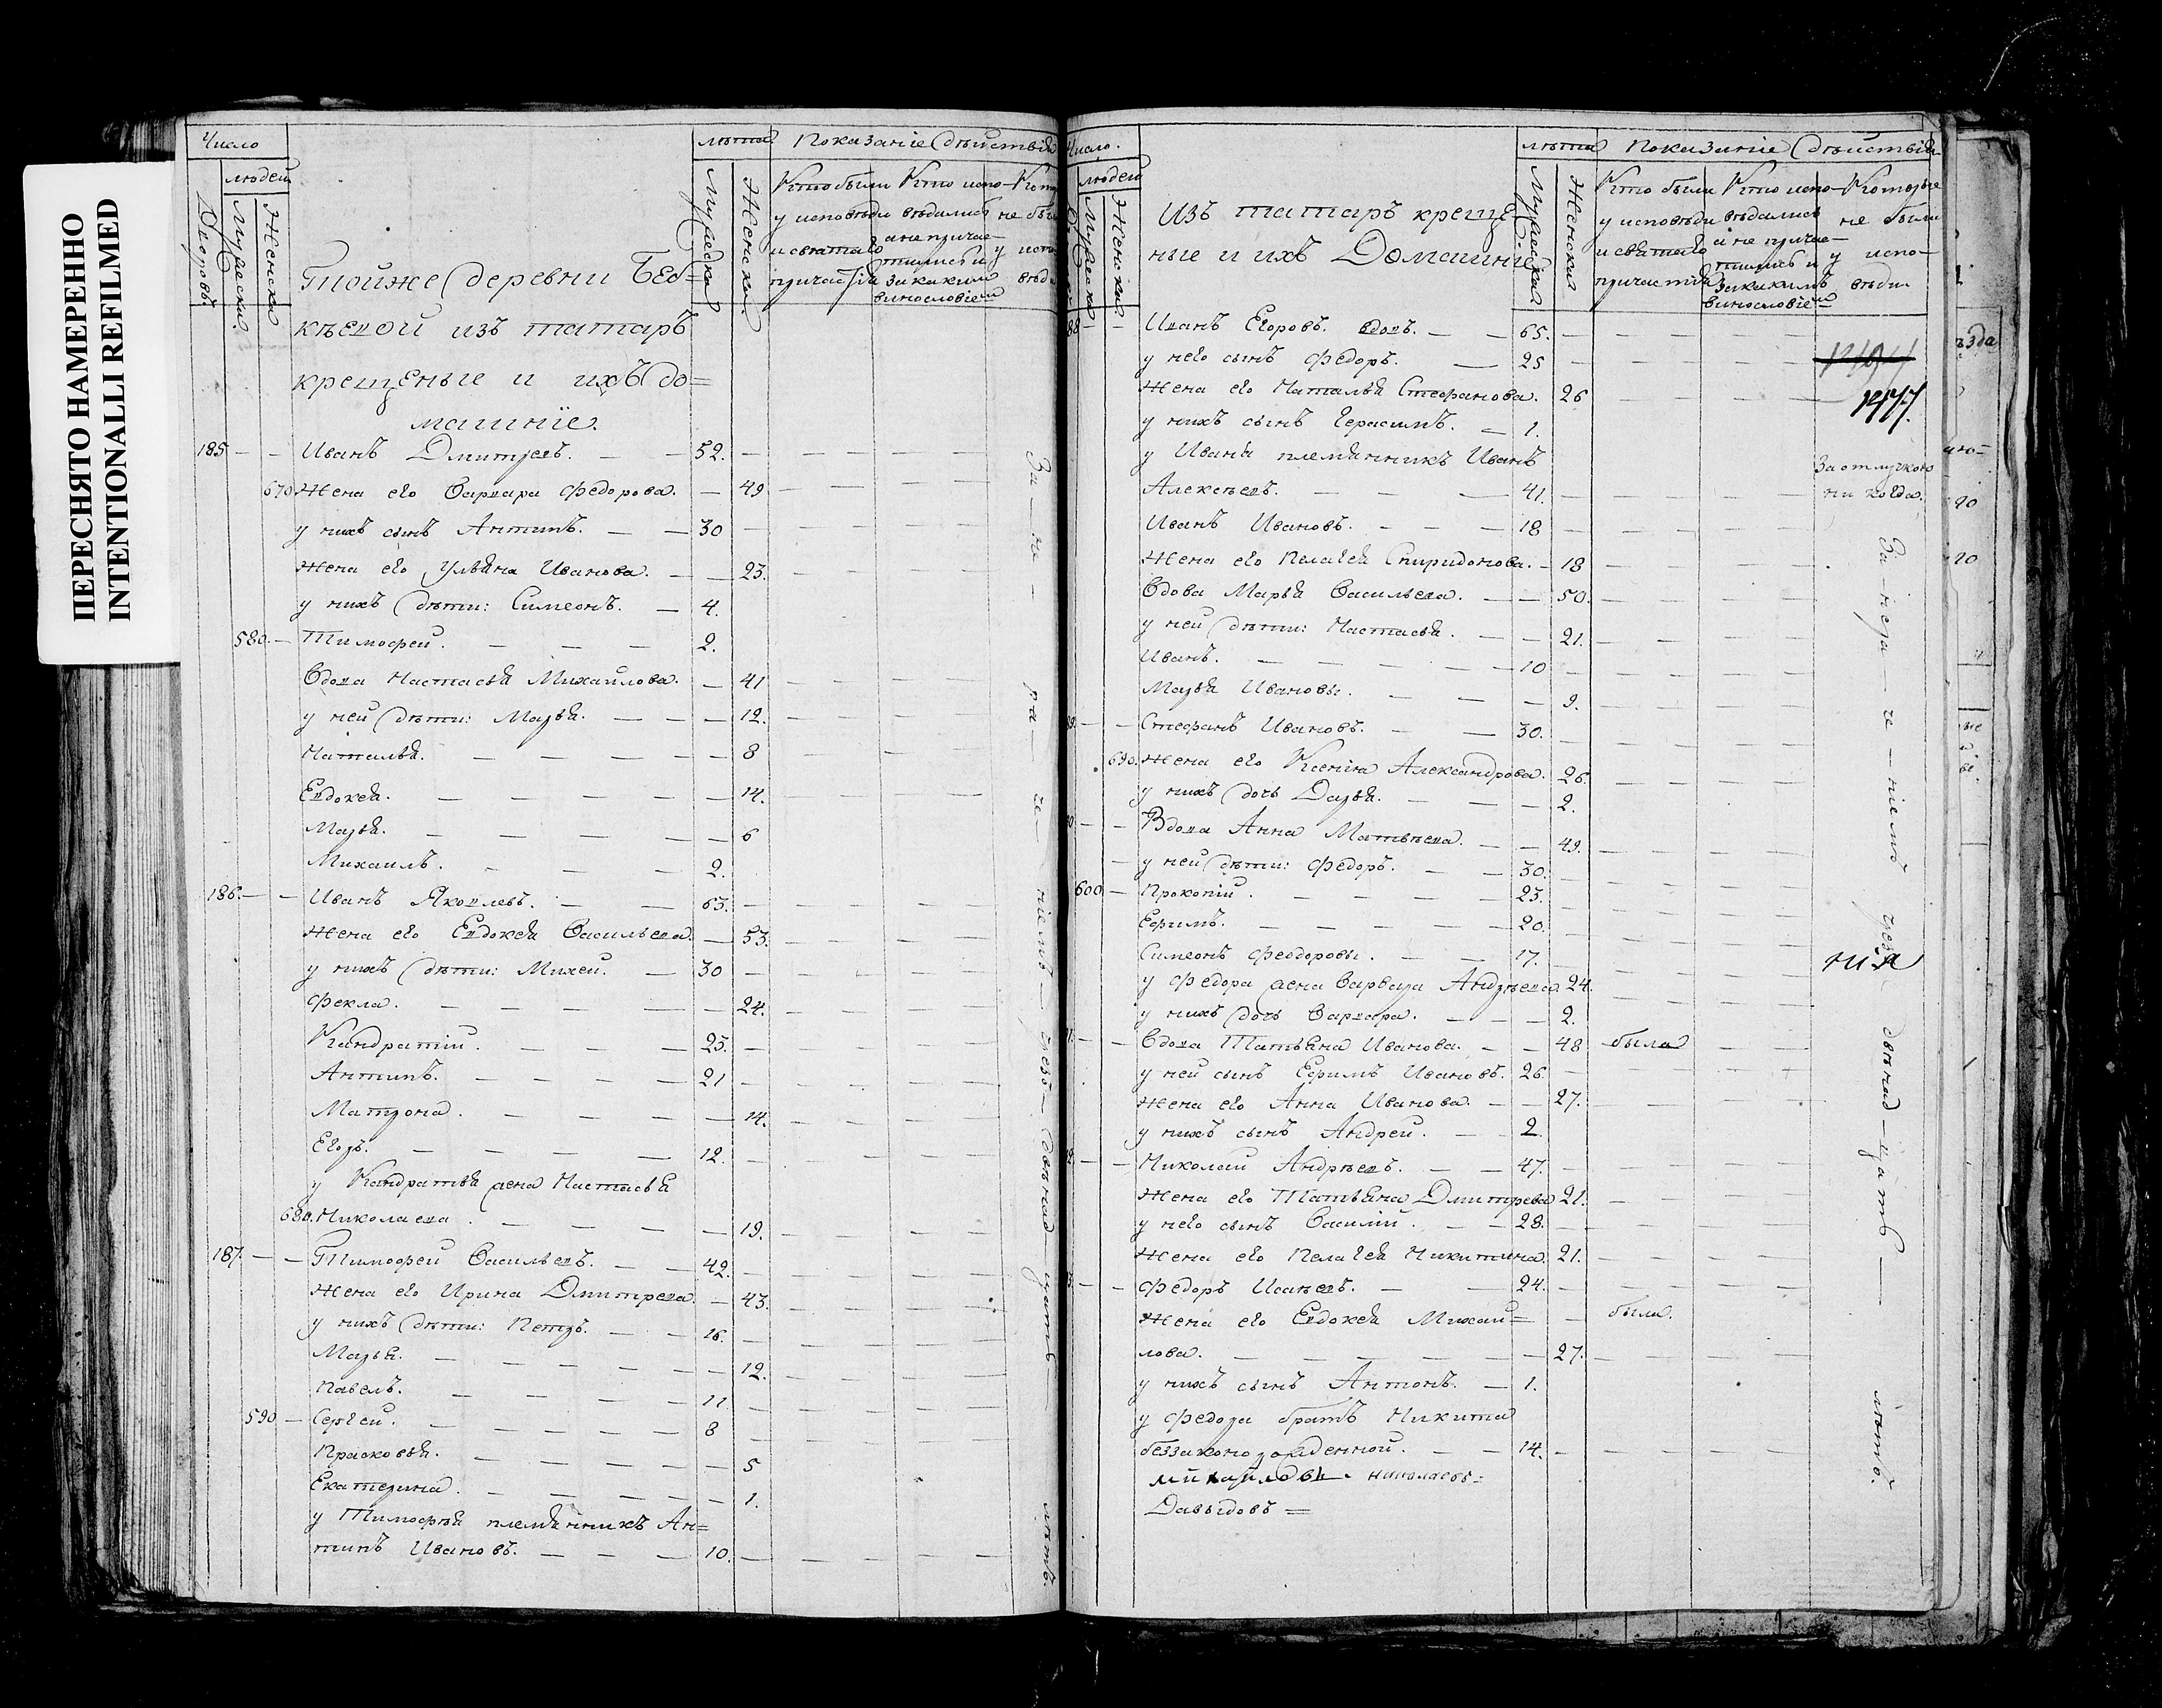 ПЕРЕСНЯТО НАМЕРЕННО
INTENTIONALLI REFILMED
Число
людей
Дворовъ.
Мужеска.
Женска
лѣта
Мужеска
Женска
Показаніе дѣйствія
Кто были у исповѣди и святаго причастія
Кто исповѣдались а не причастились и за какимъ винословіемъ
Тойже деревни
изъ татаръ
крещеные и ихъ до=
машніе.
185 Иванъ Дмитревъ. 52.
670 Жена его Варвара Федорова. 49
у нихъ сынъ Антипъ. 30
Жена его Ульяна Иванова. 23.
у нихъ дѣти: Симеонъ. 4.
580. Тимофей. 2.
Вдова Настасья Михайлова. 41
у ней дѣти: Марья. 12.
Наталья. 8
Евдокея. 14.
Марья. 6
Михаилъ. 2.
186. Иванъ Яковлевъ. 63.
Жена его Евдокея Васильева. 53.
у нихъ дѣти: Михей. 30
Фекла. 24.
Кандратій. 23.
Антипъ. 21
Матрона. 14.
Егоръ. 12.
у Кандратья жена Настасья
680. Николаева. 19.
187. Тимофей Васильевъ. 42.
Жена его Ирина Дмитрева. 43.
у нихъ дѣти: Петръ. 16.
Марья. 12.
Павелъ. 11
590 Сергей. 8
Прасковья. 5
Екатерина. 1.
у Тимофея племянникъ Ан=
типъ Ивановъ. 10.
За не ра че ніемъ чезъ двѣнад цать лѣтъ.
Число.
людей
Мужеска
Женска
лѣта
Мужеска
Женска
Показаніе дѣйствія
Кто были у исповѣди и святаго причастія
Кто исповѣдались а не причастились и за какимъ винословіемъ
Которые не были у исповѣди
Изъ татаръ креще=
ные и ихъ Домашніе
88 Иванъ Егоровъ. вдовъ. 65.
у него сынъ Федоръ. 25
Жена его Наталья Стефанова. 26
у нихъ сынъ Герасимъ. 1.
у Ивана племянникъ Иванъ
Алексѣевъ. 41. За отлучкою ни когда.
Иванъ Ивановъ. 18
Жена его Пелагея Спиридонова. 18
Вдова Марья Васильева. 50.
у ней дѣти: Настасья. 21.
Иванъ. 10
Марья Ивановы. 9.
89. Стефанъ Ивановъ. 30.
690. Жена его Ксенія Александрова. 26.
у нихъ дочь Дарья. 2.
Вдова Анна Матвѣева. 49.
у ней дѣти: Федоръ. 30.
600 Прокопій. 23.
Ефимъ. 20.
Симеонъ Феодоровы. 17.
у Федора жена Варвара Андрѣева. 24.
у нихъ дочь Варвара. 2.
Вдова Татьяна Иванова. 48 была
у ней сынъ Ефимъ Ивановъ. 26.
Жена его Анна Иванова. 27.
у нихъ сынъ Андрей. 2
Николай Андрѣевъ. 47.
Жена его Татьяна Дмитрева 21.
у него сынъ Василій. 28.
Жена его Пелагея Никитина. 21.
Федоръ Исаевъ. 24.
Жена его Евдокея Михай= была.
лова. 27.
у нихъ сынъ Антонъ. 1.
у Федора братъ Никита
беззаконорожденной. 14.
Михайловъ. Николаевъ=
Давыдовъ=
За нера че ніемъ чезъ двѣнад цать лѣтъ.